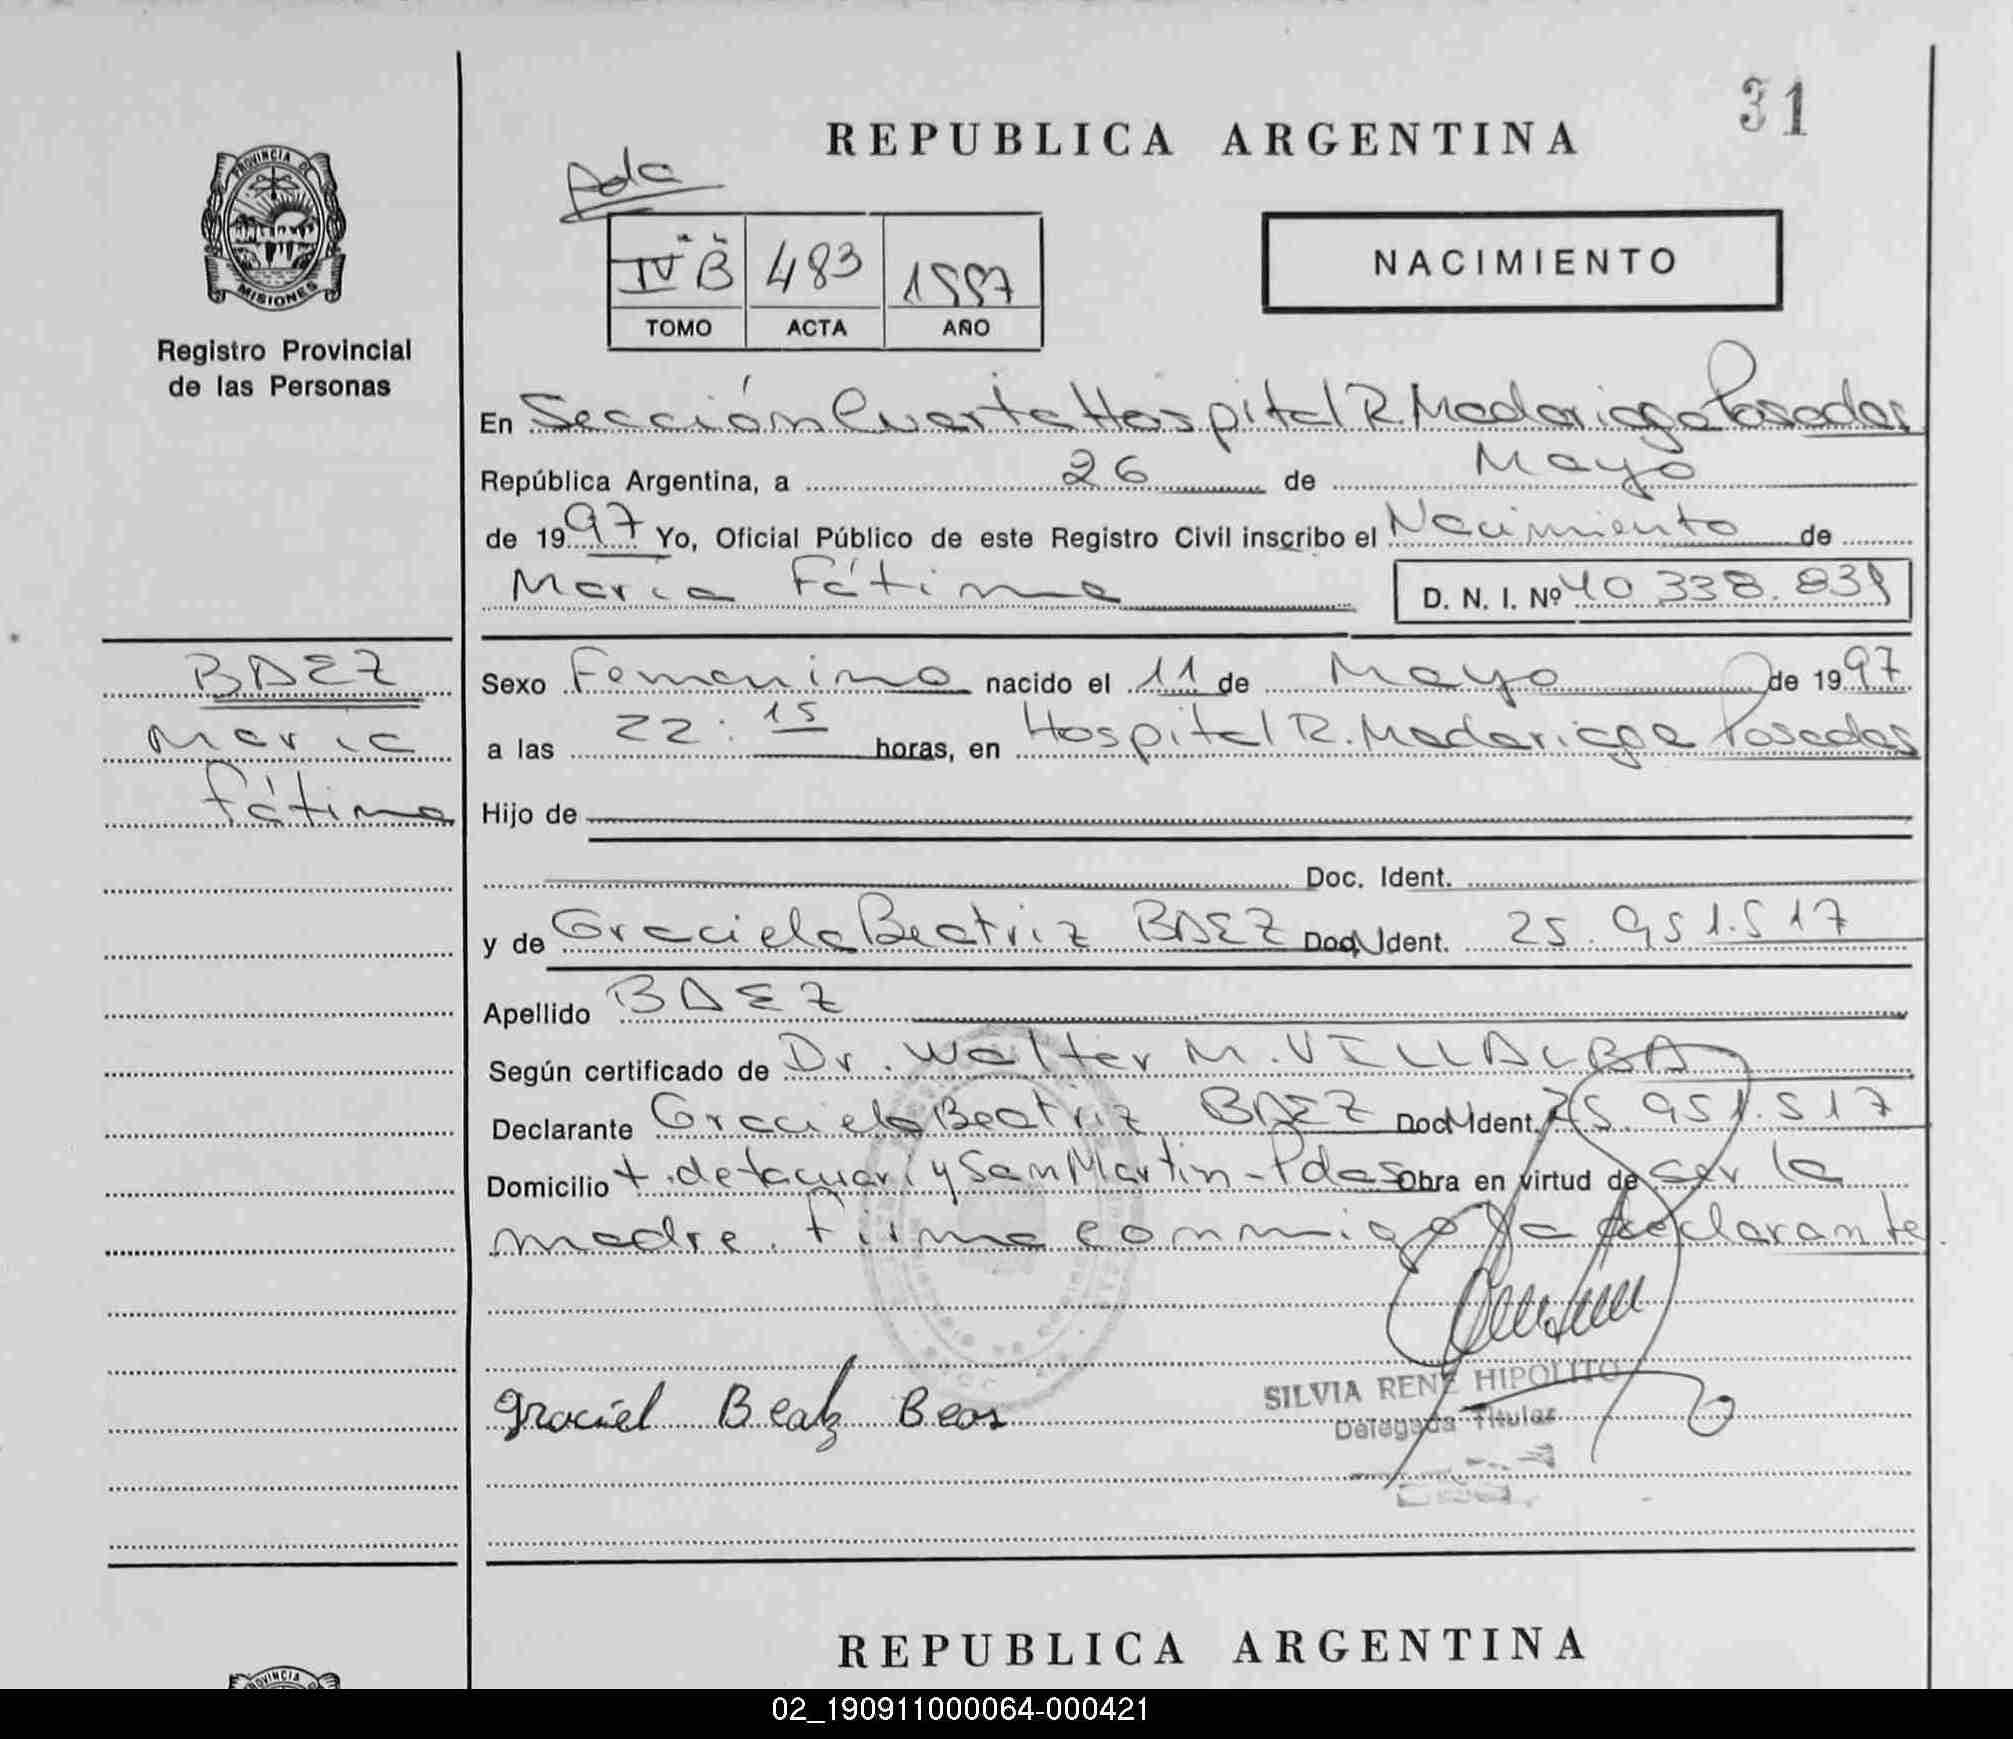 31
REPUBLICA ARGENTINA
PROVINCIA DE
MISIONES
Registro Provincial
de las Personas
IV "B" 483 1997
TOMO ACTA AÑO
NACIMIENTO
En Sección Cuarta Hospital R. Madariaga Posadas
República Argentina, a 26 de Mayo
de 1997 Yo, Oficial Público de este Registro Civil inscribo el Nacimiento de
María Fátima D. N. I. Nº 40 338.839
BAEZ
María
Fátima
Sexo Femenino nacido el 11 de Mayo de 1997
a las 22:15 horas, en Hospital R. Madariaga Posadas
Hijo de
Doc. Ident.
y de Graciela Beatriz BAEZ Doc. Ident. 25.951.517
Apellido BAEZ
Según certificado de Dr. Walter M. VILLALBA
Declarante Graciela Beatriz BAEZ Doc. Ident. 25.951.517
Domicilio y San Martin - Pdas Obra en virtud de ser la
madre. Firma conmigo la declarante.
Graciel Beatz Beas
SILVIA RENE HIPOLITO
Delegada Titular
REPUBLICA ARGENTINA
PROVINCIA
02_190911000064-000421